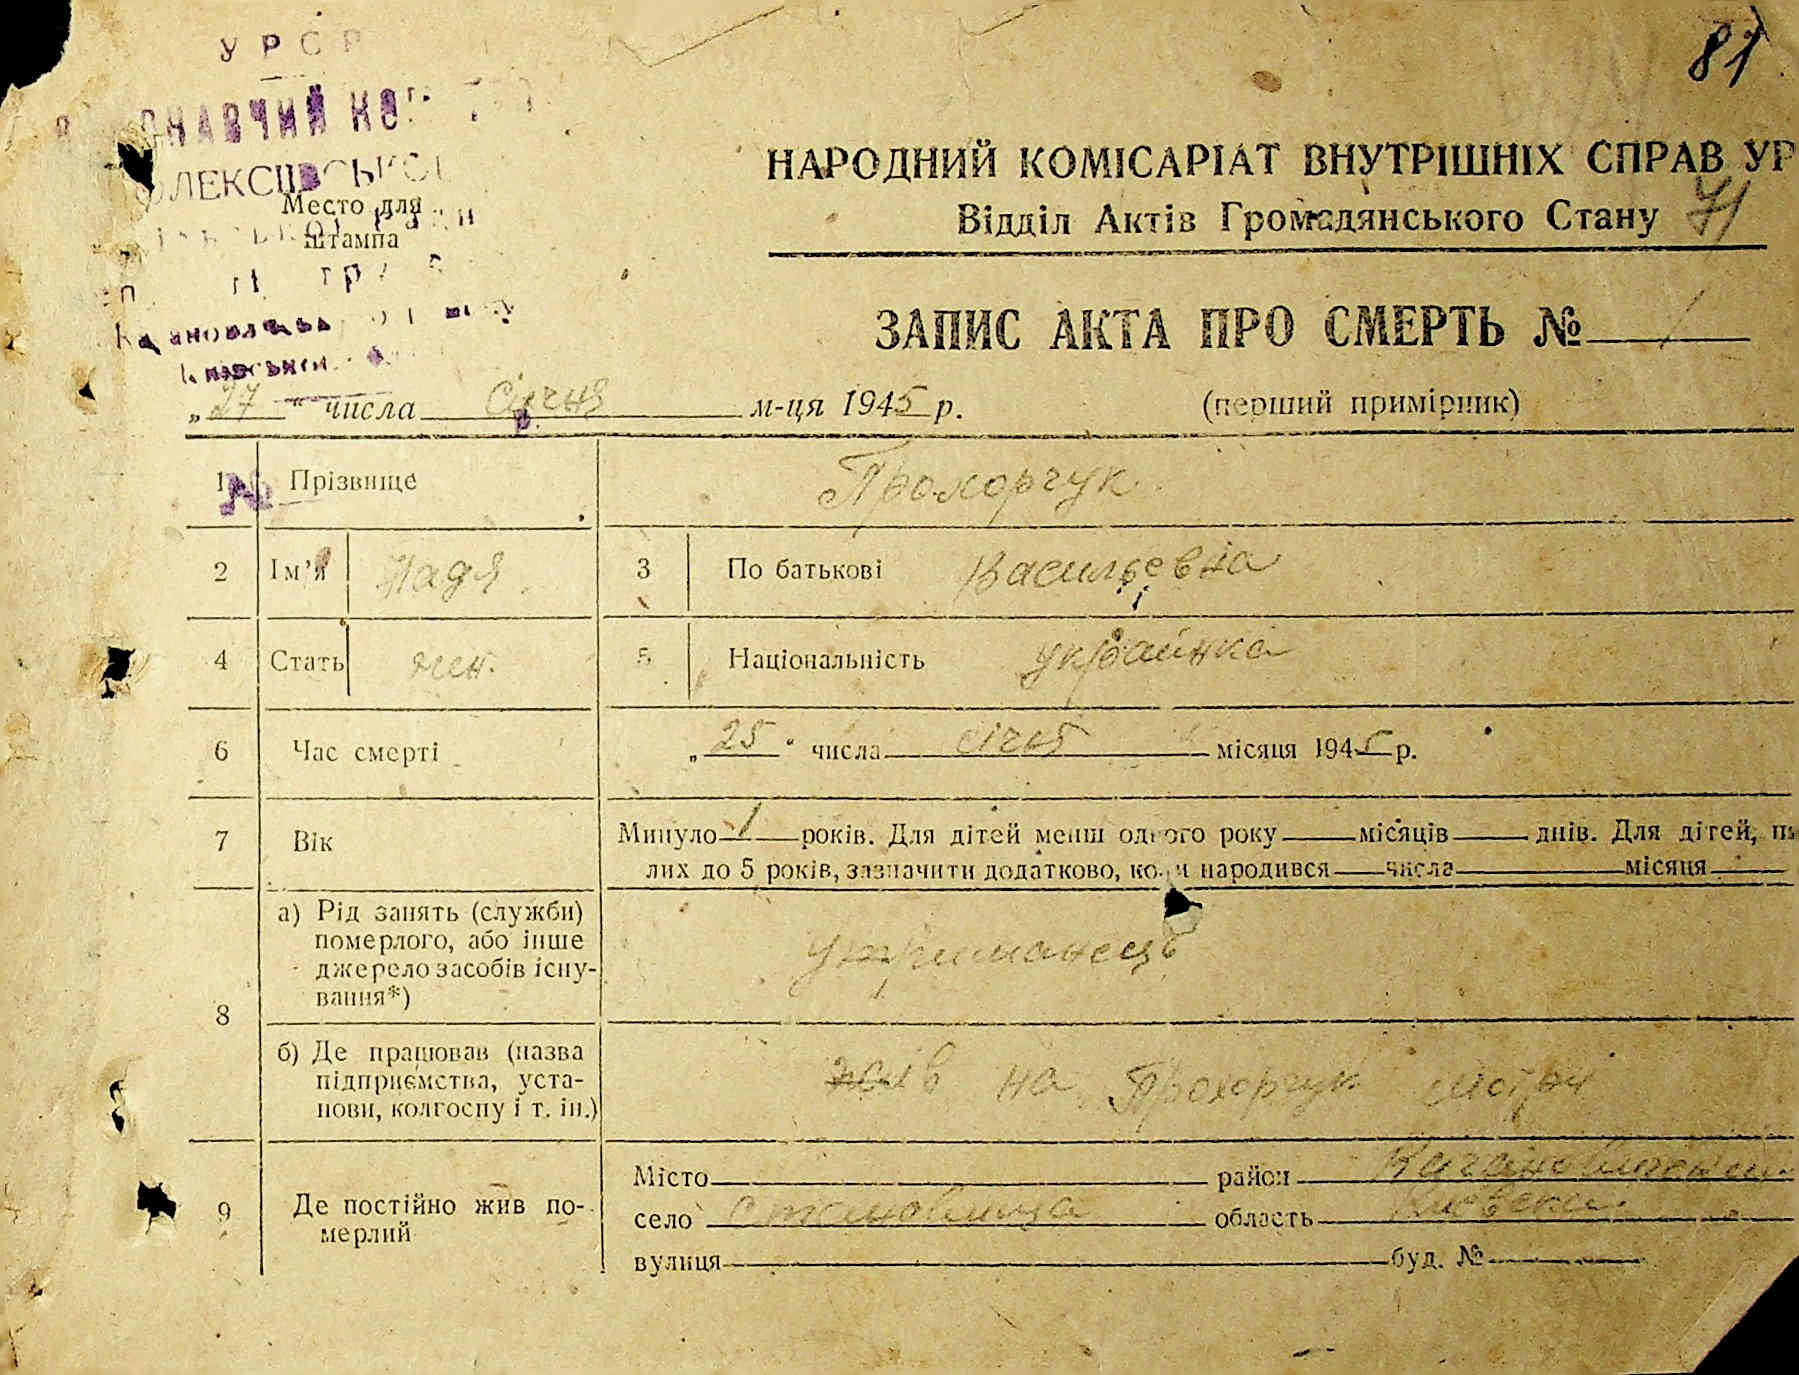 УРСР
81
НАРОДНИЙ КОМІСАРІАТ ВНУТРІШНІХ СПРАВ УР
Место для
штампа
Відділ Актів Громадянського Стану 71
ЗАПИС АКТА ПРО СМЕРТЬ № 1
„27" числа січня м-ця 1945 р. (перший примірник)
1 Прізвище Прохорчук
2 Ім'я Надя 3 По батькові Васильевна
4 Стать жен. 5 Національність українка
6 Час смерті „25" числа січня місяця 1945 р.
7 Вік Минуло 1 років. Для дітей менш одного року місяців днів. Для дітей,
лих до 5 років, зазначити додатково, коли народився числа місяця
8 а) Рід занять (служби)
померлого, або інше
джерело засобів існу-
вання*) утриманець
б) Де працював (назва
підприємства, уста-
нови, колгоспу і т. ін.) на Прохорчук
9 Де постійно жив по-
мерлий
Місто район
село становища область
вулиця буд. №